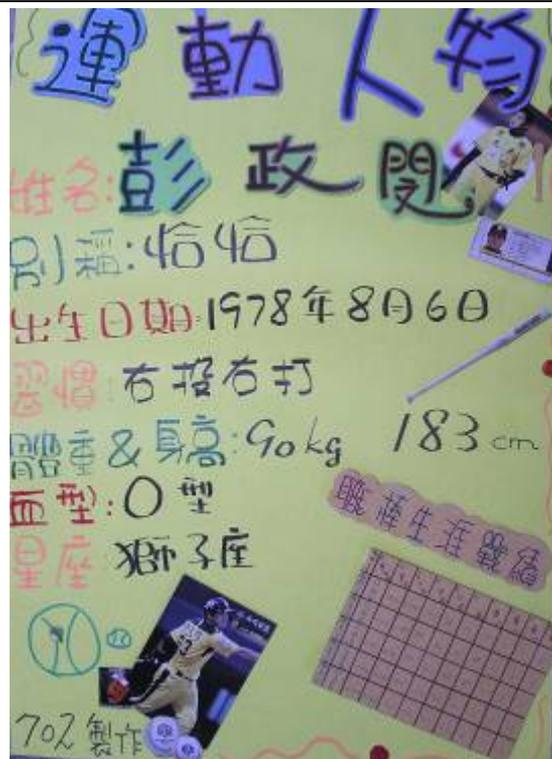 運動人物
姓名:彭政閔
別稱:恰恰
出生日期:1978年8月6日
習慣:右投右打
體重&身高:90kg 183cm
血型:O型
星座 獅子座
職棒生涯戰績
702製作